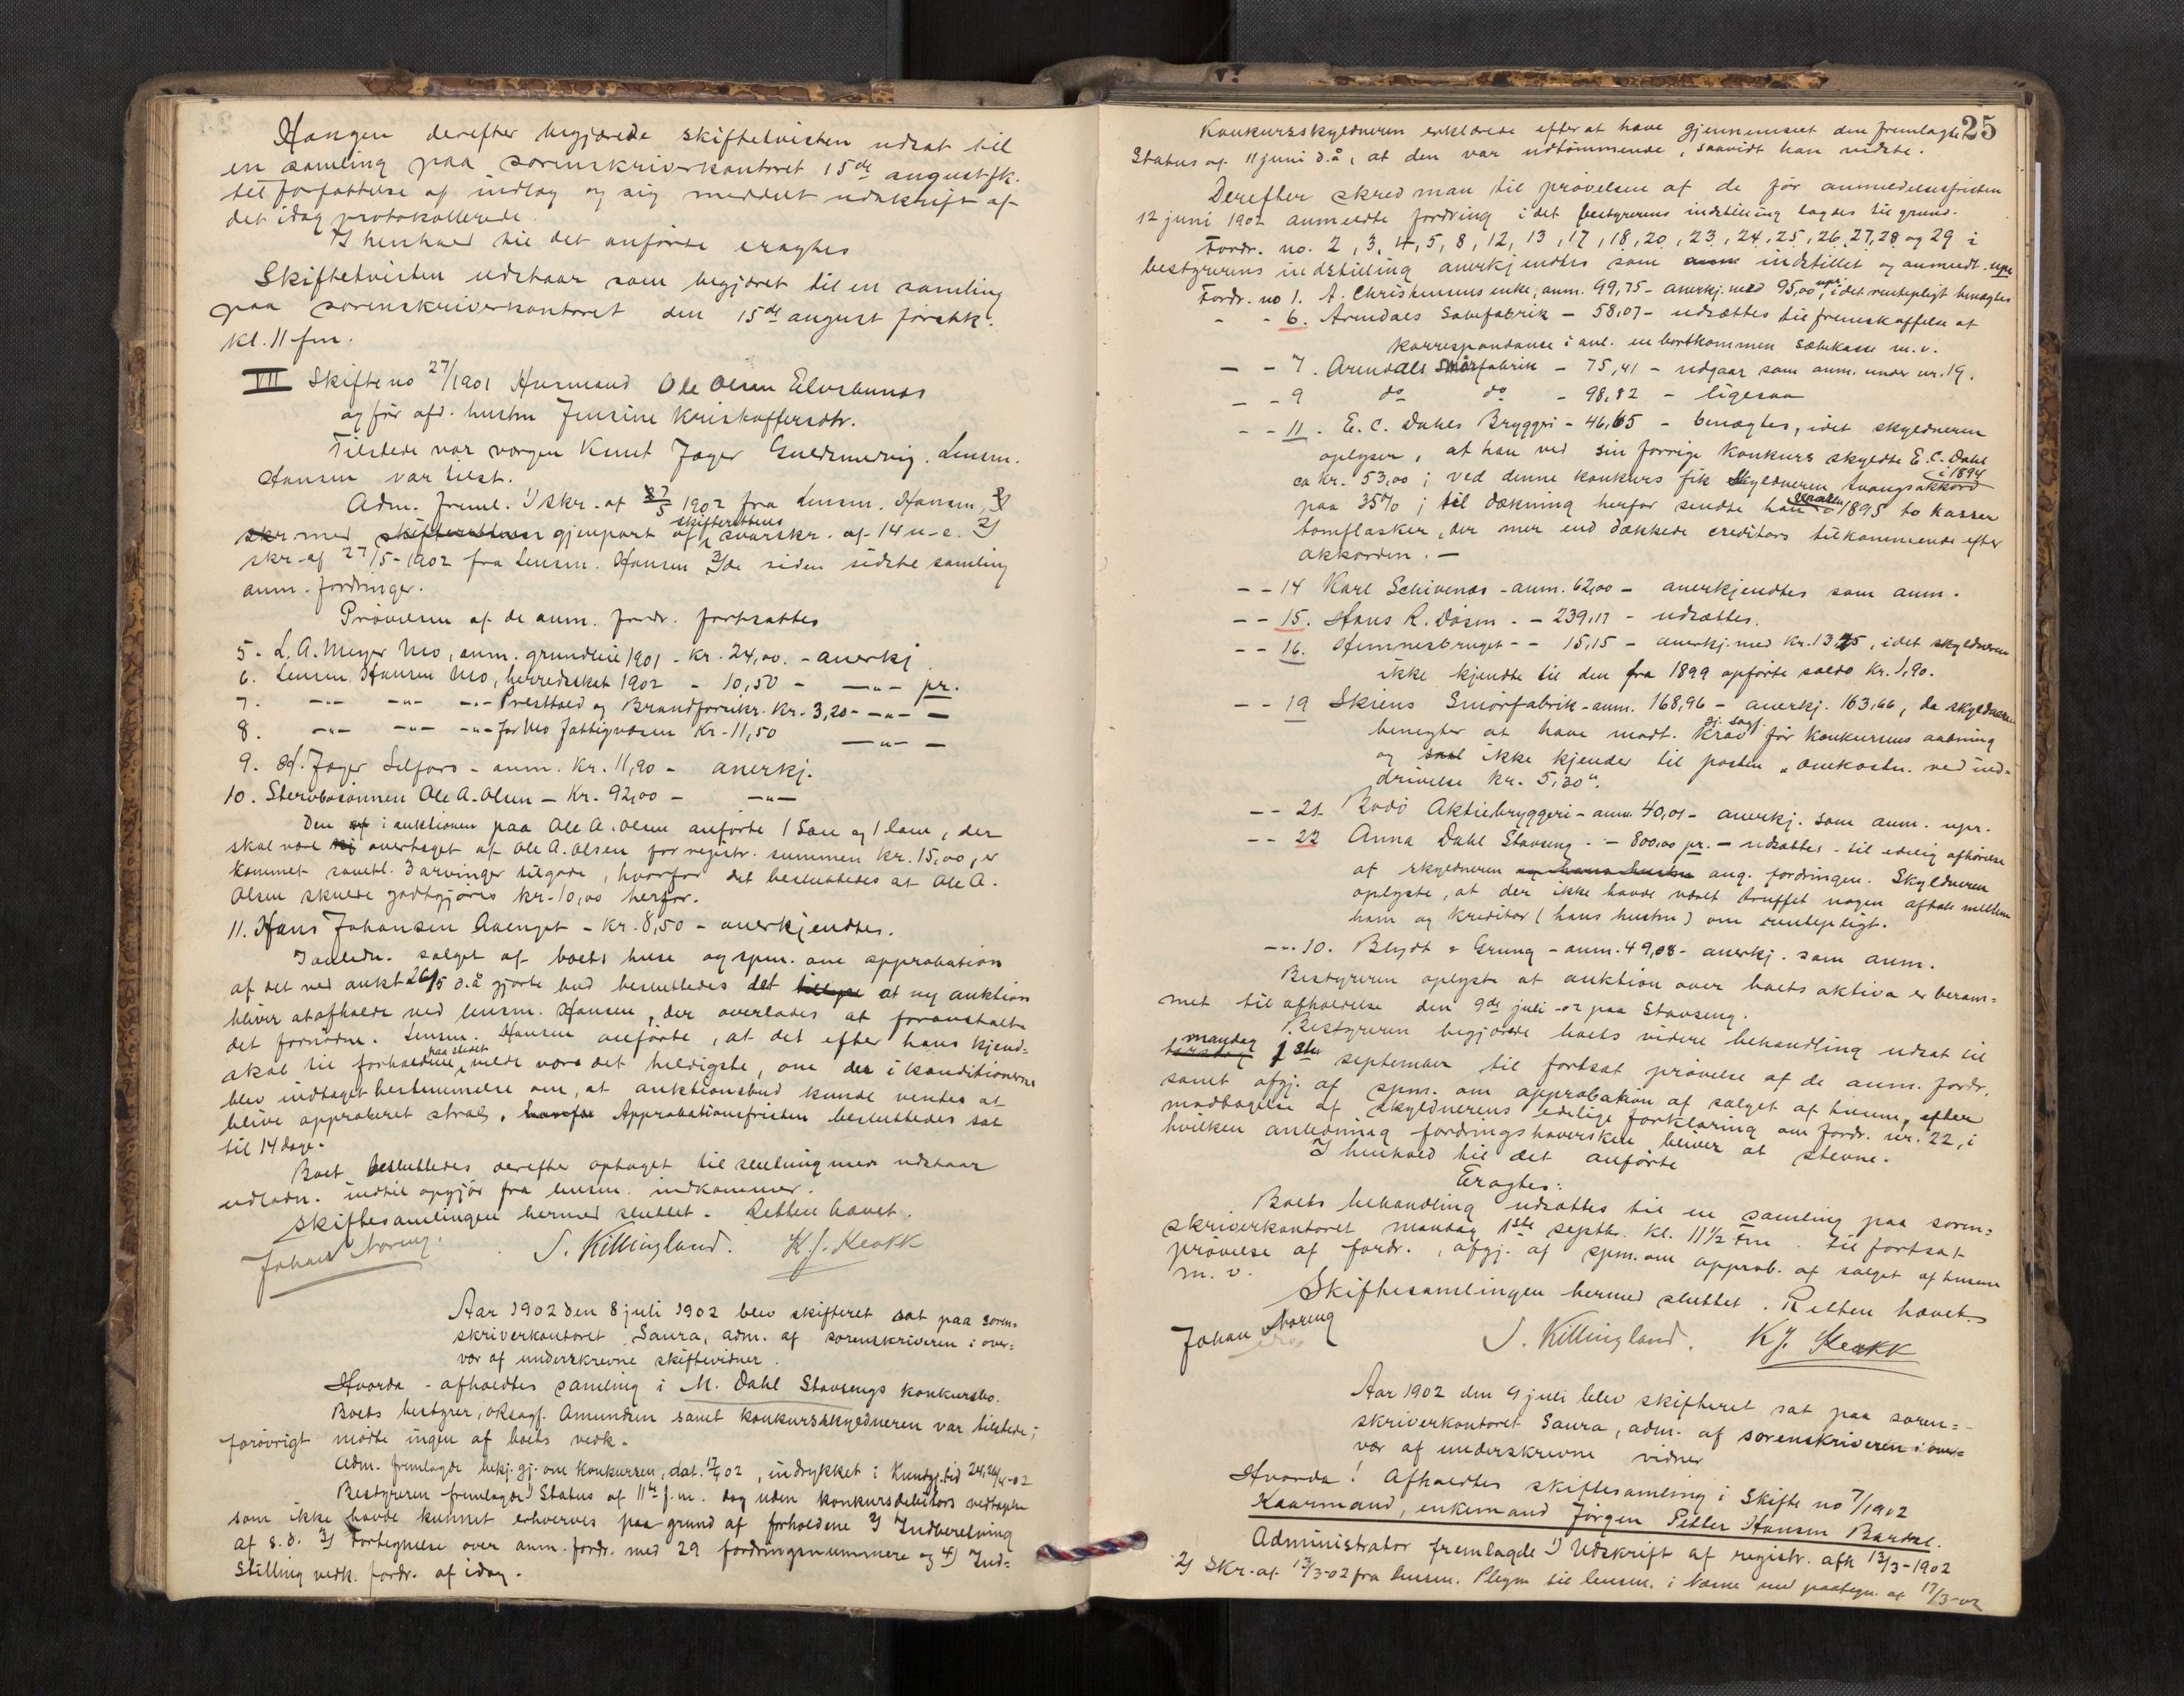 Haugen derefter begjærede skiftetvisten udsat til
en samling paa sorenskriverkontoret 15de august fk.
til forfattelse af indlæg og sig meddelt udskrift af
det idag protokollerede.
I henhold til det anførte eragtes
Skiftetvisten udstaar som begjæret til en samling
paa sorenskriverkontoret den 15de august førstk.
kl. 11 fm.
VII Skifte no 27/1901 Husmand Ole Olsen
og før afd. hustru Jensine Kristoffersdtr.
Tilstede var vergen Knut Jager . Lensm.
Hansen var tilst.
Adm. freml. 1) skr. af 1902 fra Lensm. Hansen,
skr med gjenpart af skifterettens svarskr. af 14 s.m. 2)
skr. af 27/5-1902 fra Lensm. Hansen 3) de siden sidste samling
anm. fordringer.
Prøvelsen af de anm. fordr. fortsattes
5. L. A. Meyer Mo, anm. grundleie 1901 - kr. 24,00. - anerkj.
6. Lensm. Hansen Mo, herredsskat 1902 - 10,50 - -"- pr.
7. -"- -"- -"- Presthold og Brandforsikr. Kr. 3,20 - -"- -
8. -"- -"- -"- for Mo fattigvæsen Kr. 11,50 -"- -
9. H. Jager Selfors - anm. Kr. 11,90 - anerkj.
10. Stervbosønnen Ole A. Olsen - Kr. 92,00 - -"-
Den i auktionen paa Ole A. Olsen anførte 1 Sau og 1 lam, der
skal være overtaget af Ole A. Olsen for registr. summen kr. 15,00, er
kommet samtl. 3 arvinger tilgode, hvorfor det besluttedes at Ole A.
Olsen skulde godtgjøres kr. 10,00 herfor.
11. Hans Johansen - kr. 8,50 - anerkjendtes.
I anledn. salget af boets huse og spm. om approbation
af det ved aukt 26/5 d.å gjorte bud besluttedes det at ny auktion
bliver at afholde ved lensm. Hansen, der overlades at foranstalte
det fornødne. Lensm. Hansen anførte, at det efter hans kjend=
skab til forholdene paa stedet vilde være det heldigste, om der i konditionerne
blev indtaget bestemmelse om, at auktionsbud kunde ventes at
blive approberet strax. Approbationsfristen besluttedes sat
til 14 dage.
Boet besluttedes derefter optaget til slutning men udstaar
udlodn. indtil opgjør fra lensm. indkommer.
Skiftesamlingen hermed sluttet. Retten hævet.
Johan Noreng. S. Killingland. K. J. Krokk
Aar 1902 den 8 juli 1902 blev skifteret sat paa soren=
skriverkontoret Saura, adm. af sorenskriveren i over=
vær af underskrevne skiftevidner.
Hvorda - afholdtes samling i M. Dahl Stavsengs konkursbo.
Boets bestyrer, oksagf. Amundsen samt konkursskyldneren var tilstede;
forøvrigt mødte ingen af boets vedk.
Adm. fremlagde bekj.gj. om konkursen, dat. 17/4 02, indrykket i Kundgj.tid 24, 26/4-02
Bestyreren fremlagde 1) Status af 11te f.m. dog uden konkursdebitors vedtagelse
som ikke havde kunnet erhverves paa grund af forholdene 2) Indberetning
af s.d. 3) Fortegnelse over anm. fordr. med 29 fordringsnummere og 4) Ind=
stilling vedk. fordr. af idag.
25
Konkursskyldneren erklærede efter at have gjennemseet den fremlagte
Status af 11 juni d.å, at den var udtømmende, saavidt han vidste.
Derefter skred man til prøvelsen af de før anmeldelsesfristen
12 juni 1902 anmeldte fordring idet bestyrerens indstilling lagdes til grund.
Fordr. no. 2, 3, 4, 5, 8, 12, 13, 17, 18, 20, 23, 24, 25, 26, 27, 28 og 29 i
bestyrerens indstilling anerkjendtes som indstillet og anmeldt. upr
Fordr. no 1. A. Christensens enke, anm. 99,75 - anerkj. med 95,00 upr, idet rentepligt benægtes
- - 6. Arendals Sæbefabrik - 58,07 - udsættes til fremskaffelse af
korrespondance i anl. en bortkommen sæbekasse m.v.
- - 7. Arendals Smørfabrik - 75,41 - udgaar som anm. under nr. 19.
- - 9 do do - 98,82 - ligesaa
- - 11. E. C. Dahls Bryggeri - 46,65 - benægtes, idet skyldneren
oplyser, at han ved sin forrige konkurs skyldte E. C. Dahl
ca kr. 53,00; ved denne konkurs fik skyldneren tvangsakkord i 1894
paa 35%; til dækning herfor sendte han 1895 to kasser
tomflasker, der mer end dækkede creditors tilkommende efter
akkorden. -
- - 14 Karl Schivenes - anm. 62,00 - anerkjendtes som anm.
- - 15. Hans R. Døsen - - 239,17 - udsættes.
- - 16. Hemnesbruget - - 15,15 - anerkj. med kr. 13,25, idet skyldneren
ikke kjendte til den fra 1899 opførte saldo kr. 1,90.
- - 19 Skiens Smørfabrik - anm. 168,96 - anerkj. 163,66, da skyldneren
benegter at have modt. krav gj. sagf. før konkursens aabning
og ikke kjender til posten „omkostn. ved ind=
drivelse kr. 5,30".
- - 21. Bodø Aktiebryggeri - anm. 40,01 - anerkj. som anm. upr.
- - 22 Anna Dahl Stavseng - - 800,00 pr. - udsættes - til edelig afhørelse
af skyldneren og hans hustru ang. fordringen. Skyldneren
oplyste, at der ikke havde været truffet nogen aftale mellem
ham og kreditor (hans hustru) om rentepligt.
-"- 10. Blydt & Grung - anm. 49,08 - anerkj. som anm.
Bestyreren oplyste at auktion over boets aktiva er beram=
met til afholdelse den 9de juli -02 paa Stavseng.
Bestyreren begjærede boets videre behandling udsat til
mandag 1ste september til fortsat prøvelse af de anm. fordr,
samt afgj. af spm. om approbation af salget af husene, efter
modtagelse af skyldnerens edelige forklaring om fordr. nr. 22, i
hvilken anledning fordringshaversken bliver at stevne.
I henhold til det anførte
Eragtes:
Boets behandling udsættes til en samling paa soren=
skriverkontoret mandag 1ste septbr. kl. 11 1/2 fm. til fortsat
prøvelse af fordr., afgj. af spm. om approb. af salget af husene
m. v.
Skiftesamlingen hermed sluttet. Retten hævet.
Johan Noreng S. Killingland. K. J. Krokk
Aar 1902 den 9 juli blev skifteret sat paa soren=
skriverkontoret Saura, adm. af sorenskriveren i over=
vær af underskrevne vidner
Hvorda! Afholdtes skiftesamling i Skifte no 7/1902
Kaarmand, enkemand Jørgen Petter Hansen .
Administrator fremlagde 1) Udskrift af registr. afh 13/3-1902
2) Skr. af 13/3-02 fra lensm. til lensm. i Næsne med paategn. af 17/3-02